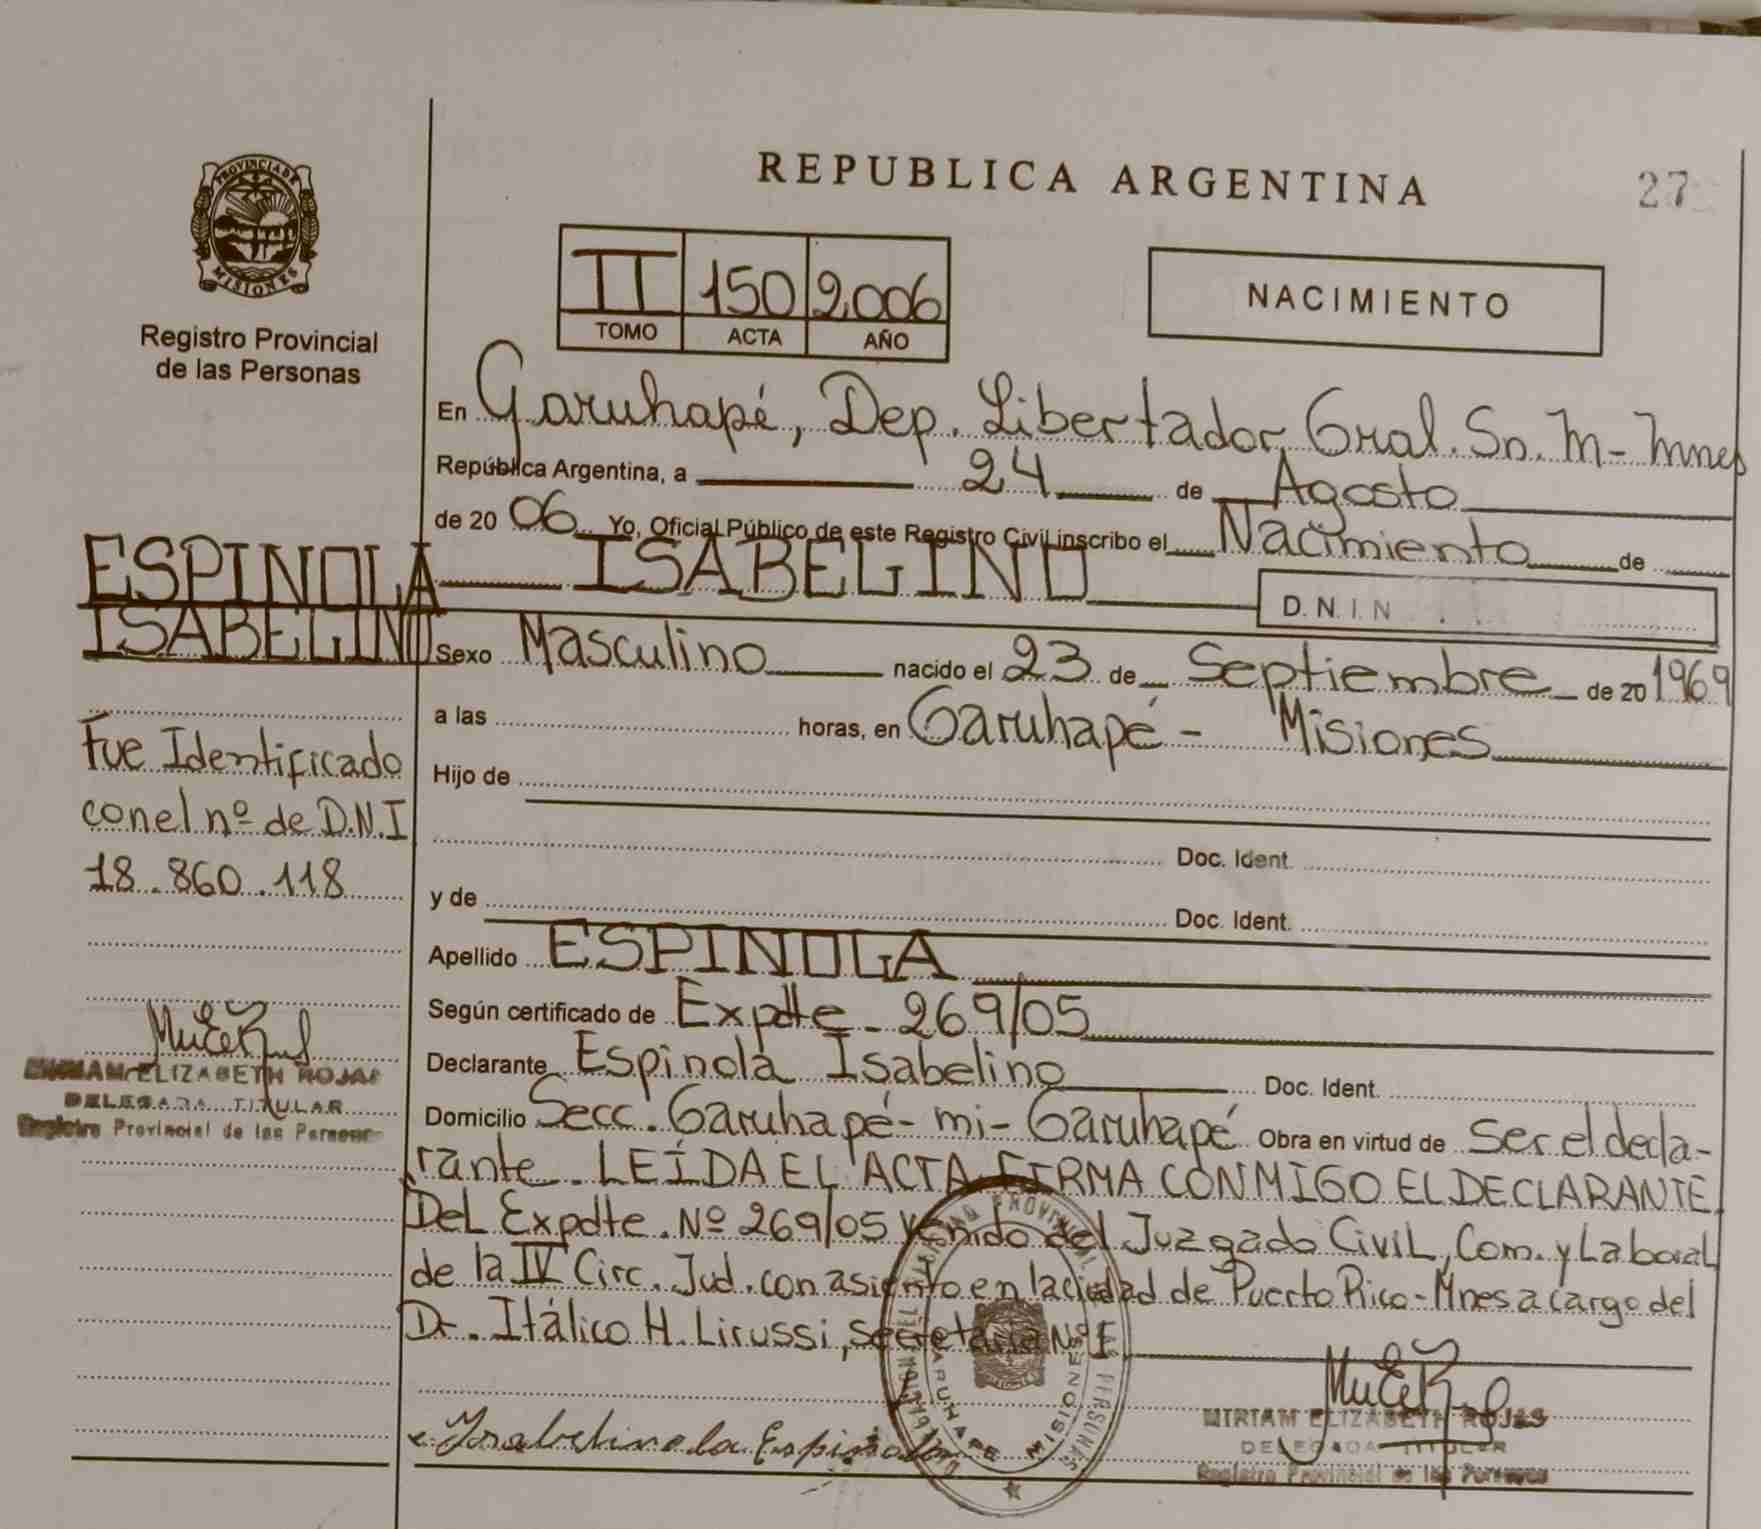 REPUBLICA ARGENTINA
27
PROVINCIA DE
MISIONES
Registro Provincial
de las Personas
II 150 2006
TOMO ACTA AÑO
NACIMIENTO
En Garuhapé, Dep. Libertador Gral. Sn. M - Mnes
República Argentina, a 24 de Agosto
de 20 06 Yo, Oficial Público de este Registro Civil inscribo el Nacimiento de
ISABELINO
D.N.I.N
Sexo Masculino nacido el 23 de Septiembre de 20 1969
a las horas, en Garuhapé - Misiones
Hijo de
Doc. Ident.
y de Doc. Ident.
Apellido ESPINOLA
Según certificado de Expdte - 269/05
Declarante Espinola Isabelino Doc. Ident.
Domicilio Secc. Garuhapé - mi - Garuhapé Obra en virtud de Ser el decla-
rante. LEÍDA EL ACTA FIRMA CONMIGO EL DECLARANTE.
Del Expdte. Nº 269/05 venido del Juzgado Civil, Com. y Laboral
de la IV Circ. Jud. con asiento en la ciudad de Puerto Rico - Mnes a cargo del
Dr. Itálico H. Lirussi, secretaria Nº 1
ESPINOLA
ISABELINO
Fue Identificado
con el nº de D.N.I
18.860.118
MIRIAM ELIZABETH ROJAS
DELEGADA TITULAR
Registro Provincial de las Personas
Espinola
GARUHAPE MISIONES
MIRIAM ELIZABETH ROJAS
DELEGADA TITULAR
Registro Provincial de las Personas